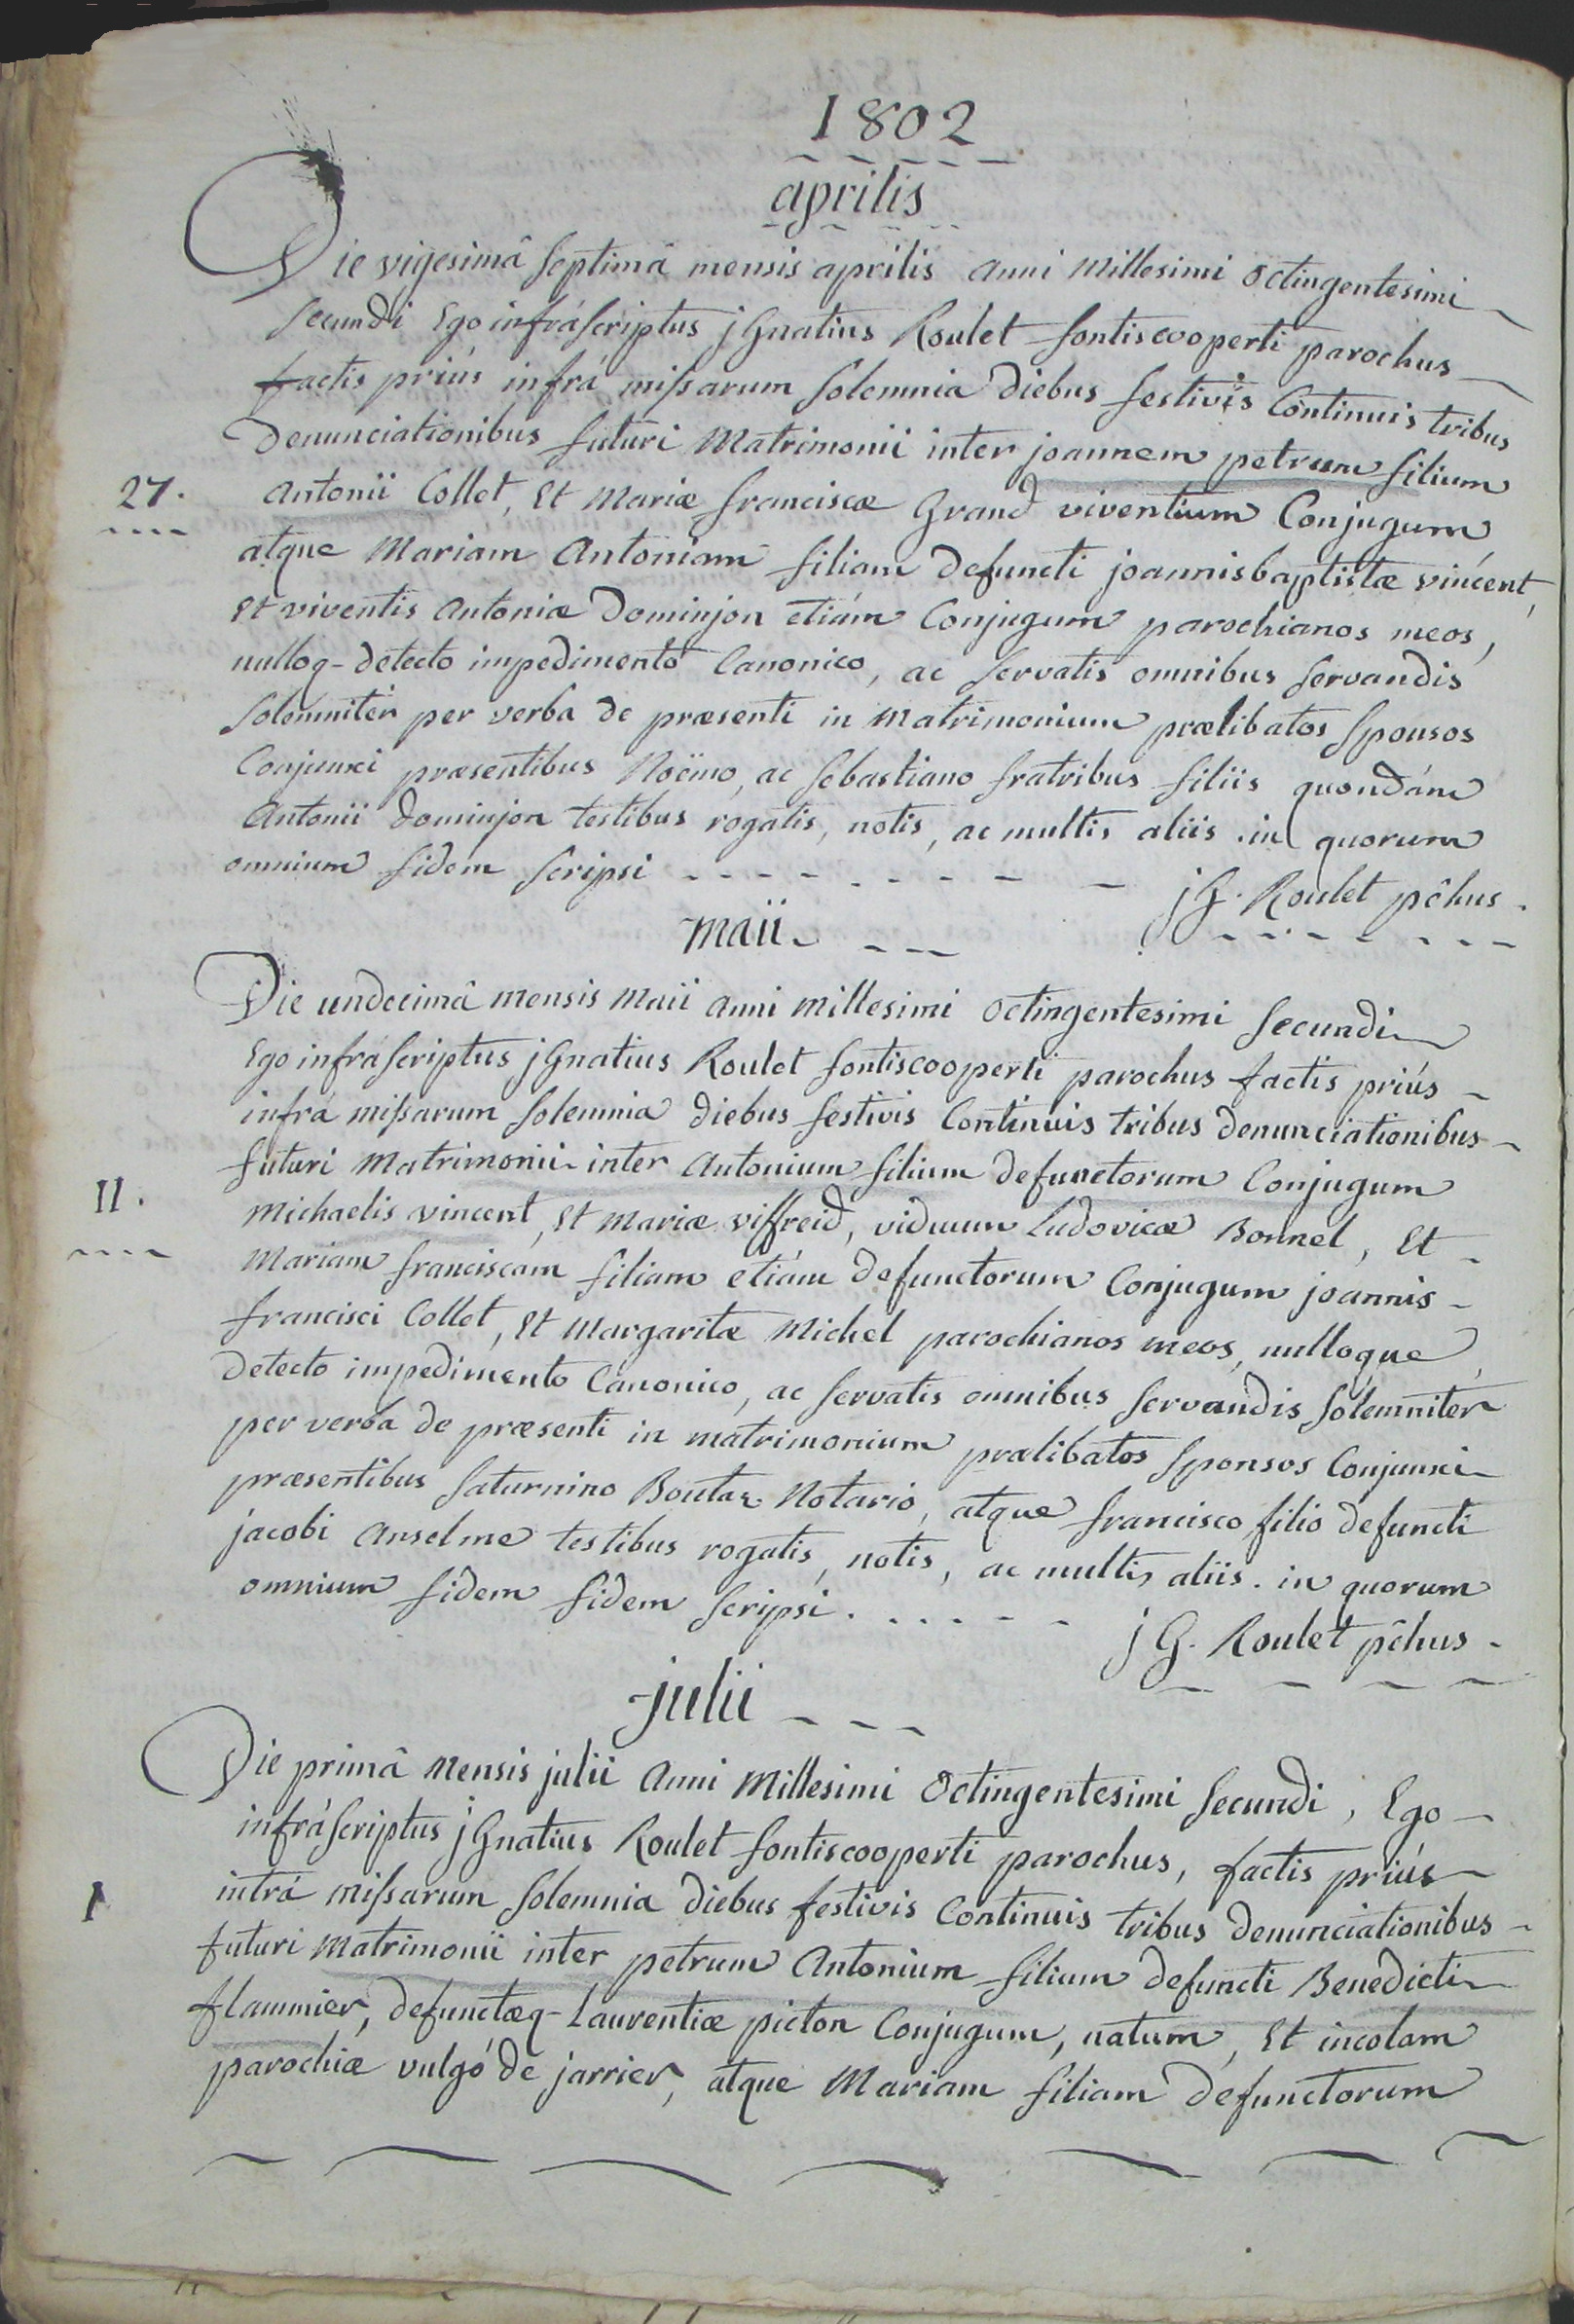 1802
aprilis
Die vigesimâ septimâ mensis aprilis anni Millesimi octingentesimi
secundi Ego infráscriptus jGnatius Roulet fontiscooperti parochus
factis priús infrá missarum solemnia diebus festivis Continuis tribus
denunciationibus futuri Matrimonii inter joannem petrum filium
27. Antonii Collet, Et Mariæ franciscæ Grand viventium Conjugum
atque Mariam Antoniam filiam defuncti joannisbaptistæ vincent,
Et viventis Antoniæ Dominjon etiám Conjugum parochianos meos,
nulloq- detecto impedimento Canonico, ac servatis omnibus servandis
solemnitér per verba de præsenti in matrimonium prælibatos sponsos
Conjunxi præsentibus Noëmo, ac sebastiano fratribus filiis quondám
Antonii Dominjon testibus rogatis, notis, ac multis aliis. in quorum
omnium fidem scripsi - - - - - - - - - -
jG. Roulet pchus.
maii - - -
Die undecimâ mensis Maii anni millesimi octingentesimi secundi
Ego infráscriptus jGnatius Roulet fontiscooperti parochus factis priús -
infrá missarum solemnia diebus festivis Continuis tribus denunciationibus -
futuri Matrimonii inter Antonium filium defunctorum Conjugum
II. Michaelis vincent, Et Mariæ viffreid, viduum Ludovicæ Bonnel, Et -
Mariam franciscám filiam etiám defunctorum Conjugum joannis -
francisci Collet, Et Margaritæ Michel parochianos meos, nulloque
detecto impedimento Canonico, ac servatis omnibus servandis solemnitér
per verba de præsenti in matrimonium prælibatos sponsos Conjunxi
præsentibus saturnino Boutaz Notario, atque francisco filio defuncti
jacobi Anselme testibus rogatis, notis, ac multis aliis. in quorum
omnium fidem fidem scripsi . - - - - -
jG. Roulet pchus -
julii - - -
Die primâ Mensis julii Anni Millesimi Octingentesimi secundi, Ego -
infráscriptus jGnatius Roulet fontiscooperti parochus, factis priús -
I intrá missarum solemnia diebus festivis Continuis tribus denunciationibus -
futuri matrimonii inter petrum Antonium filium defuncti Benedicti
flammier, defunctæq- Laurentiæ picton Conjugum, natum, Et incolam
parochiæ vulgó de jarrier, atque Mariam filiam defunctorum